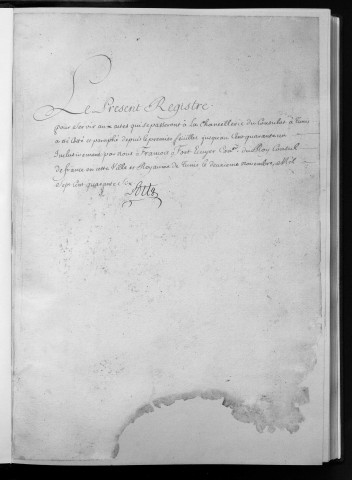 Le Present Registre
pour servir aux actes qui se passeront à la Chancellerie du Consulat à Tunis
a été et paraphé depuis le premier feuillet jusqu'au
Inclusivement par nous François Fort Ecuyer du Roy Consul
de france en cette Ville et Royaume de Tunis le deuxieme novembre Mil
Sept Cent quarante
Fort